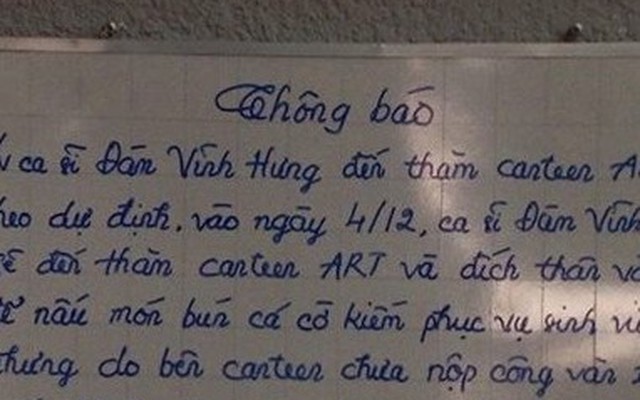 Thông báo
ca sĩ Đàm Vĩnh Hưng đến thăm canteen
heo dự định, vào ngày 4/12, ca sĩ Đàm Vĩnh
sẽ đến thăm canteen ART và đích thân
để nấu món bún cá cờ kiếm phục vụ sinh
nhưng do bên canteen chưa nộp công văn